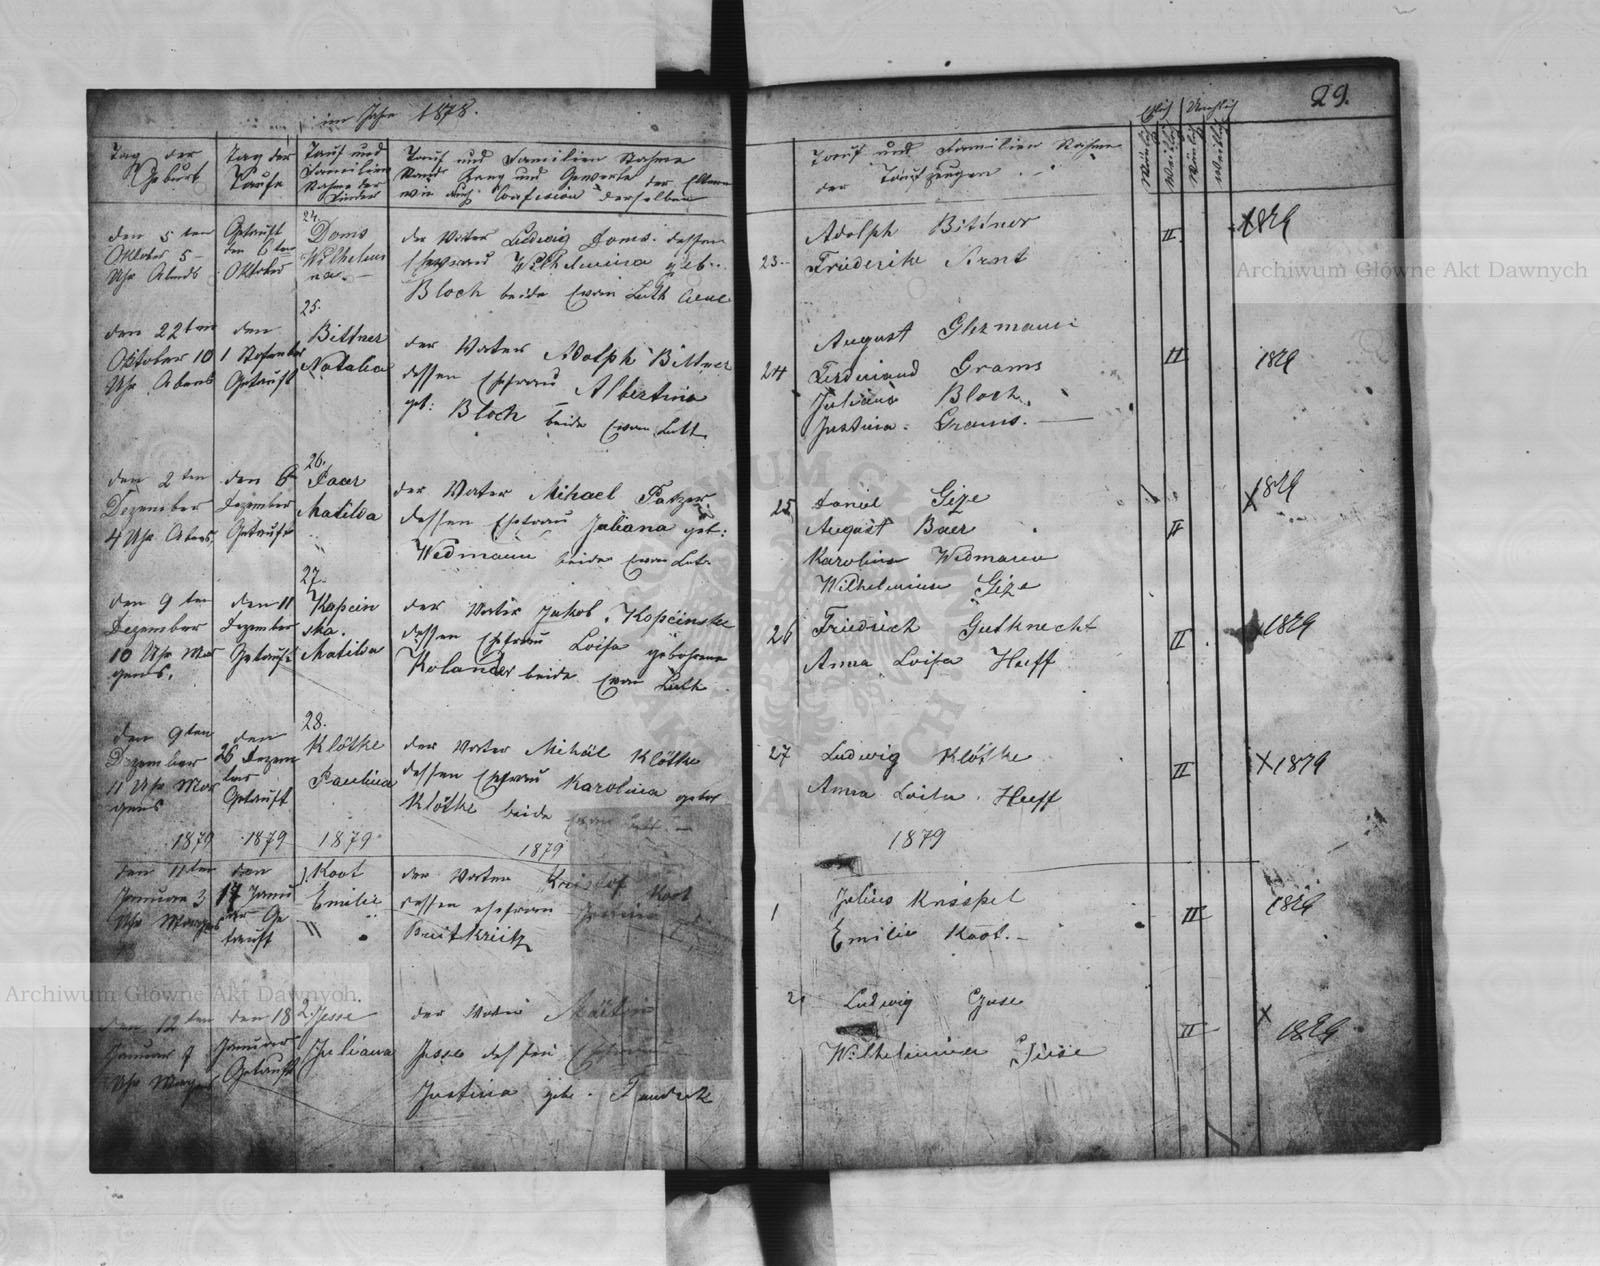 im Jahre 1878.
Tag der Geburt
Tag der Taufe
Tauf und Familien Nahme der Kinder
Tauf und Familien Nahme
Stand Rang und Gewerbe der Eltern
wie auch Confesion derselben
24.
den 5 ten Oktober 5 Uhr Abends
Getauft den 6 ten Oktober
Doms Wilhelmi na.
der Vater Ludwig Doms. dessen
Ehefrau Wilhelmina geb.
Bloch beide Ewan Luth
25.
den 22 ten Oktober 10 Uhr Abens
den 1 November Getauft
Bittner Natalia
der Vater Adolph Bittner
dessen Ehefrau Albertina
geb: Bloch beide Ewan Luth.
26.
den 2 ten Dezember 4 Uhr Abens,
den 6 Dezember Getauft
Matilda
der Vater Mihael Patzer
dessen Ehefrau Juliana geb:
Wedmann beide Ewan Lut.
27.
den 9 ten Dezember 10 Uhr Mor gens.
den 11 Dezember Getauft
Kopcin ska. Matilda
der Vater Jakob Kopcinske
dessen Ehefrau Loisa gebohrene
Rolander beide Ewan Luth
28.
den 9ten Dezember 11 Uhr Mor gens
den 26 Dezem ber Getauft
Klötke Paulina
der Vater Mihäl Klötke
dessen Ehefrau Karolina gebor
Klötke beide Ewan Luth.
1879 1879 1879 1879
den 11 ten Januar 3 Uhr Morgens
den 17 Janu ar Ge tauft
1. Koot Emilie
der Vater Kristof Koot
dessen ehefrau Justina
Buitkreitz
den 12 ten Januar 9 Uhr Morgens
den 18 Januar Getauft
2. Jesse Juliana
der Vater Märtin
Jesse dessen Ehefrau
Justina gebo.
29.
Tauf und Familien Nahme
der Tauf zeugen.
Ehlich Unehlich
Mänlich Weiblich Mänlich Weiblich
Adolph Bittner
23 Friederike Arnt
II
X 1829
August Ghzmann
24 Ferdinand Grams
II
1829
Juliana Bloch.
Justina Grams.
25 Daniel Gize
X 1829
August Baer
II
Karolina Wedmann
Wilhelmina Gize
26 Friedrich Gutknecht
II
X 1829
Anna Loisa Heeff
27 Ludwig Klötke
II
X 1879
Anna Loisa Heeff
1879
1 Julius Krispel
II
1829
Emilie Koot.
2 Ludwig Guse
II
X 1829
Wilhelmina Giese
Archiwum Główne Akt Dawnych
Archiwum Główne Akt Dawnych